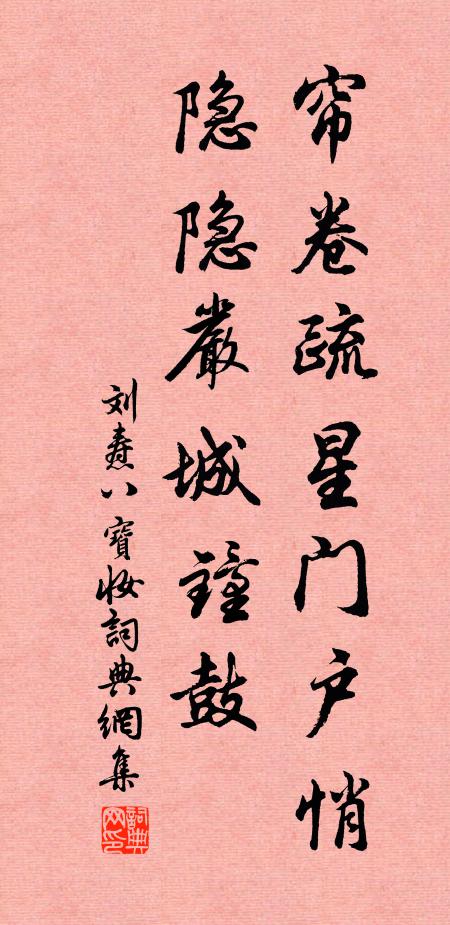 帘卷疏星门户悄
隐隐严城钟鼓
刘焘八宝妆词典网集
词典网印